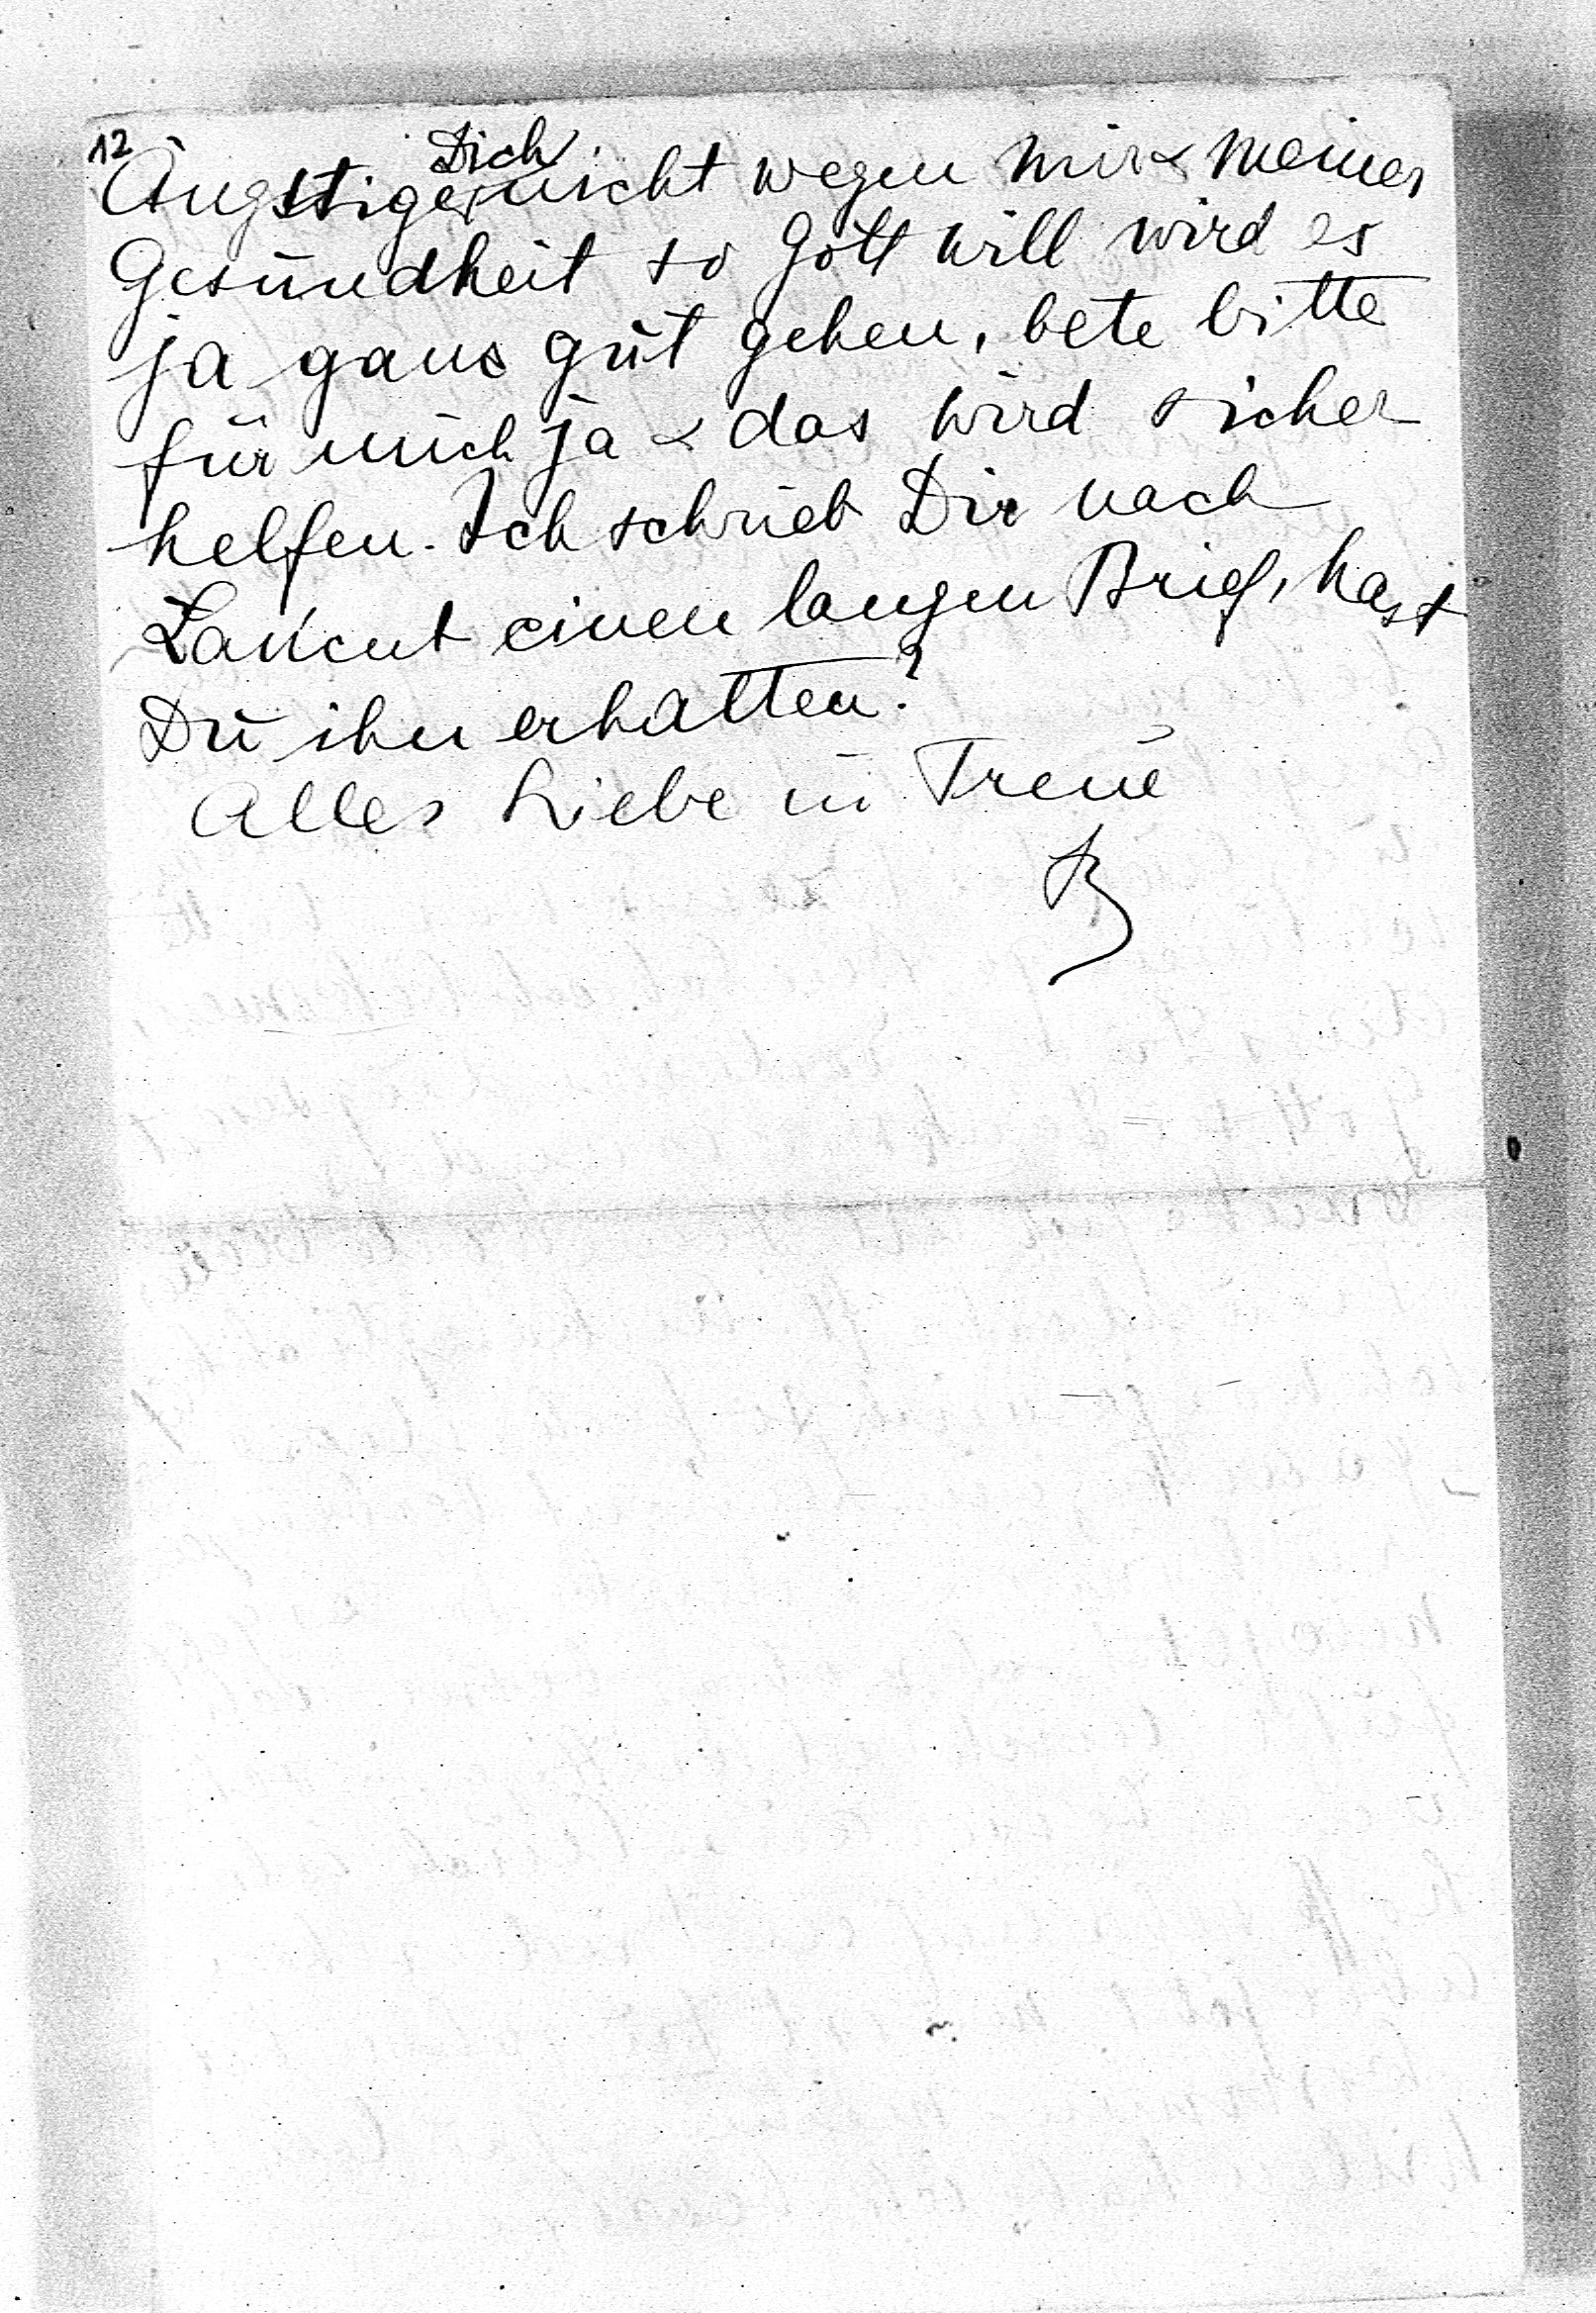 12
Ängstige Dich nicht wegen mir & meiner
Gesundheit so Gott will wird es
ja ganz gut gehen, bete bitte
für mich ja & das wird sicher
helfen. Ich schrieb Dir nach
Lancut einen langen Brief, hast
Du ihn erhalten?
Alles Liebe in Treue
B